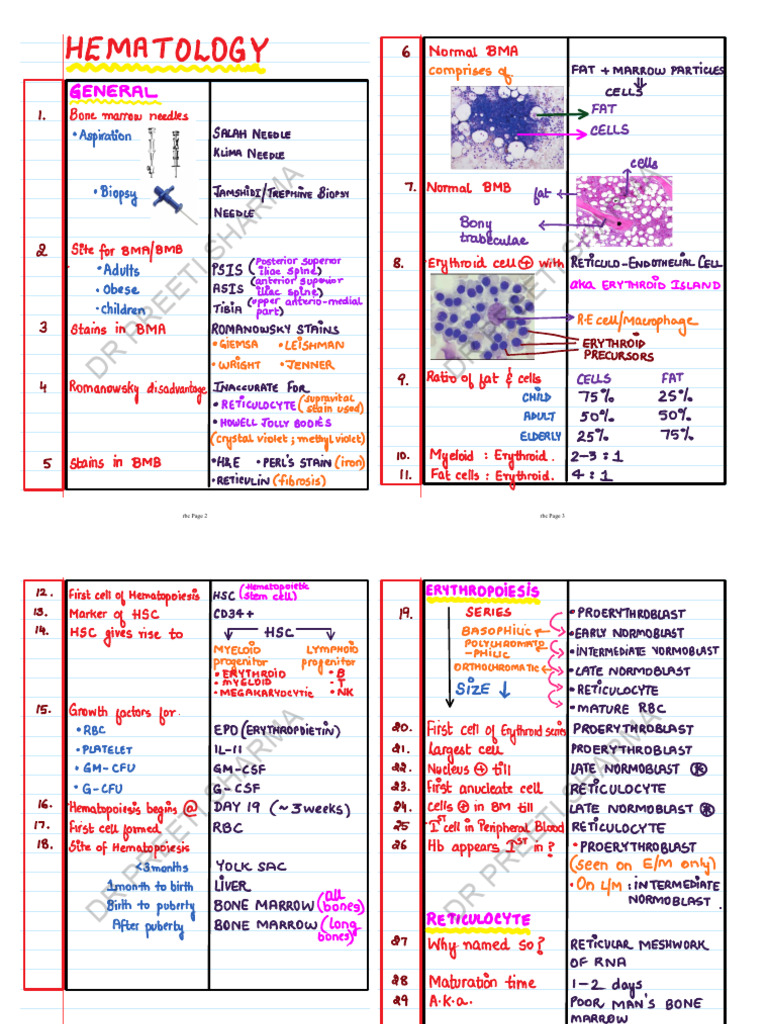 HEMATOLOGY
GENERAL
1. Bone marrow needles
• Aspiration SALAH NEEDLE
KLIMA NEEDLE
• Biopsy JAMSHIDI/TREPHINE BIOPSY
NEEDLE
2 Site for BMA/BMB
• Adults PSIS (Posterior superior iliac spine)
• Obese ASIS (anterior superior iliac spine)
• Children TIBIA (upper anterio-medial part)
3 Stains in BMA ROMANOWSKY STAINS
• GIEMSA • LEISHMAN
• WRIGHT • JENNER
4 Romanowsky disadvantage INACCURATE FOR
• RETICULOCYTE (supravital stain used)
• HOWELL JOLLY BODIES
(crystal violet ; methyl violet)
5 Stains in BMB • H&E • PERL'S STAIN (iron)
• RETICULIN (fibrosis)
rbc Page 2
6 Normal BMA
comprises of FAT + MARROW PARTICLES
CELLS
FAT
CELLS
cells
7. Normal BMB fat
Bony
trabeculae
8. Erythroid cell + with RETICULO-ENDOTHELIAL CELL
aka ERYTHROID ISLAND
R.E cell/Macrophage
ERYTHROID
PRECURSORS
9. Ratio of fat & cells CELLS FAT
CHILD 75% 25%
ADULT 50% 50%
ELDERLY 25% 75%
10. Myeloid : Erythroid. 2-3 : 1
11. Fat cells : Erythroid. 4 : 1
rbc Page 3
12. First cell of Hematopoiesis HSC (Hematopoietic stem cell)
13. Marker of HSC CD34+
14. HSC gives rise to HSC
MYELOID progenitor LYMPHOID progenitor
• ERYTHROID • B
• MYELOID • T
• MEGAKARYOCYTIC • NK
15. Growth factors for.
• RBC EPO (ERYTHROPOIETIN)
• PLATELET IL-11
• GM-CFU GM-CSF
• G-CFU G-CSF
16. Hematopoiesis begins @ DAY 19 (~3 weeks)
17. First cell formed RBC
18. Site of Hematopoiesis
<3 months YOLK SAC
1 month to birth LIVER
Birth to poberty BONE MARROW (all bones)
After puberty BONE MARROW (long bones)
ERYTHROPOIESIS
19. SERIES • PROERYTHROBLAST
BASOPHILIC • EARLY NORMOBLAST
POLYCHROMATO-PHILIC • INTERMEDIATE NORMOBLAST
ORTHOCHROMATIC • LATE NORMOBLAST
SIZE ↓ • RETICULOCYTE
• MATURE RBC
20. First cell of Erythroid series PROERYTHROBLAST
21. Largest cell PROERYTHROBLAST
22. Nucleus + till LATE NORMOBLAST R
23. First anucleate cell RETICULOCYTE
24. Cells + in BM till LATE NORMOBLAST R
25 1ST cell in Peripheral Blood RETICULOCYTE
26 Hb appears 1ST in? • PROERYTHROBLAST
(seen on E/M only)
• On L/M : INTERMEDIATE
NORMOBLAST.
RETICULOCYTE
27 Why named so? RETICULAR MESHWORK
OF RNA
28 Maturation time 1-2 days
29 A.K.a. POOR MAN'S BONE
MARROW
DR PREETI SHARMA
DR PREETI SHARMA
DR PREETI SHARMA
DR PREETI SHARMA